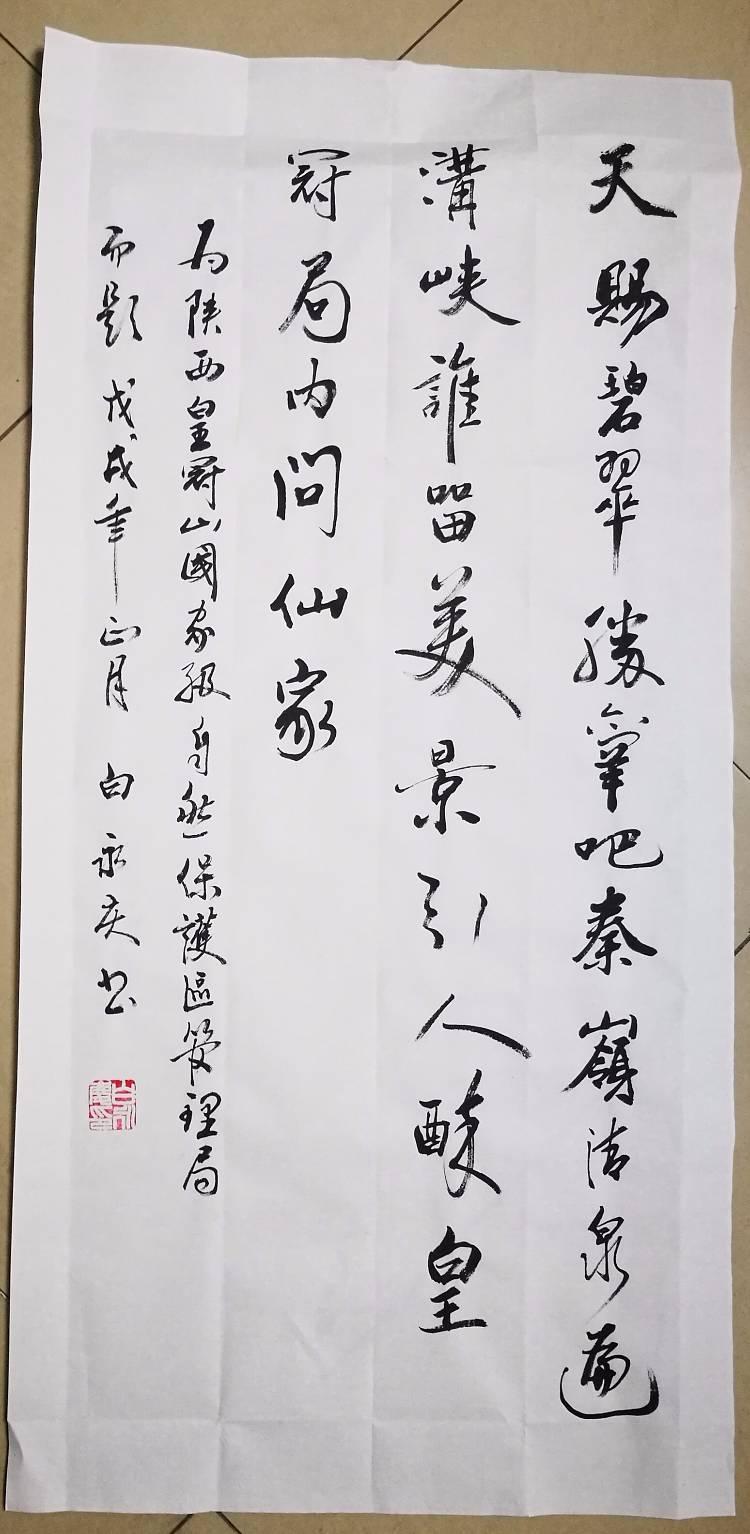 天賜碧翠勝吧秦嶺清泉遍
溝峽誰留美景引人醉皇
冠局内問仙家
为陕西皇冠山國家級自然保護區管理局
而题 戊戌年正月 白永庆书
白永慶印